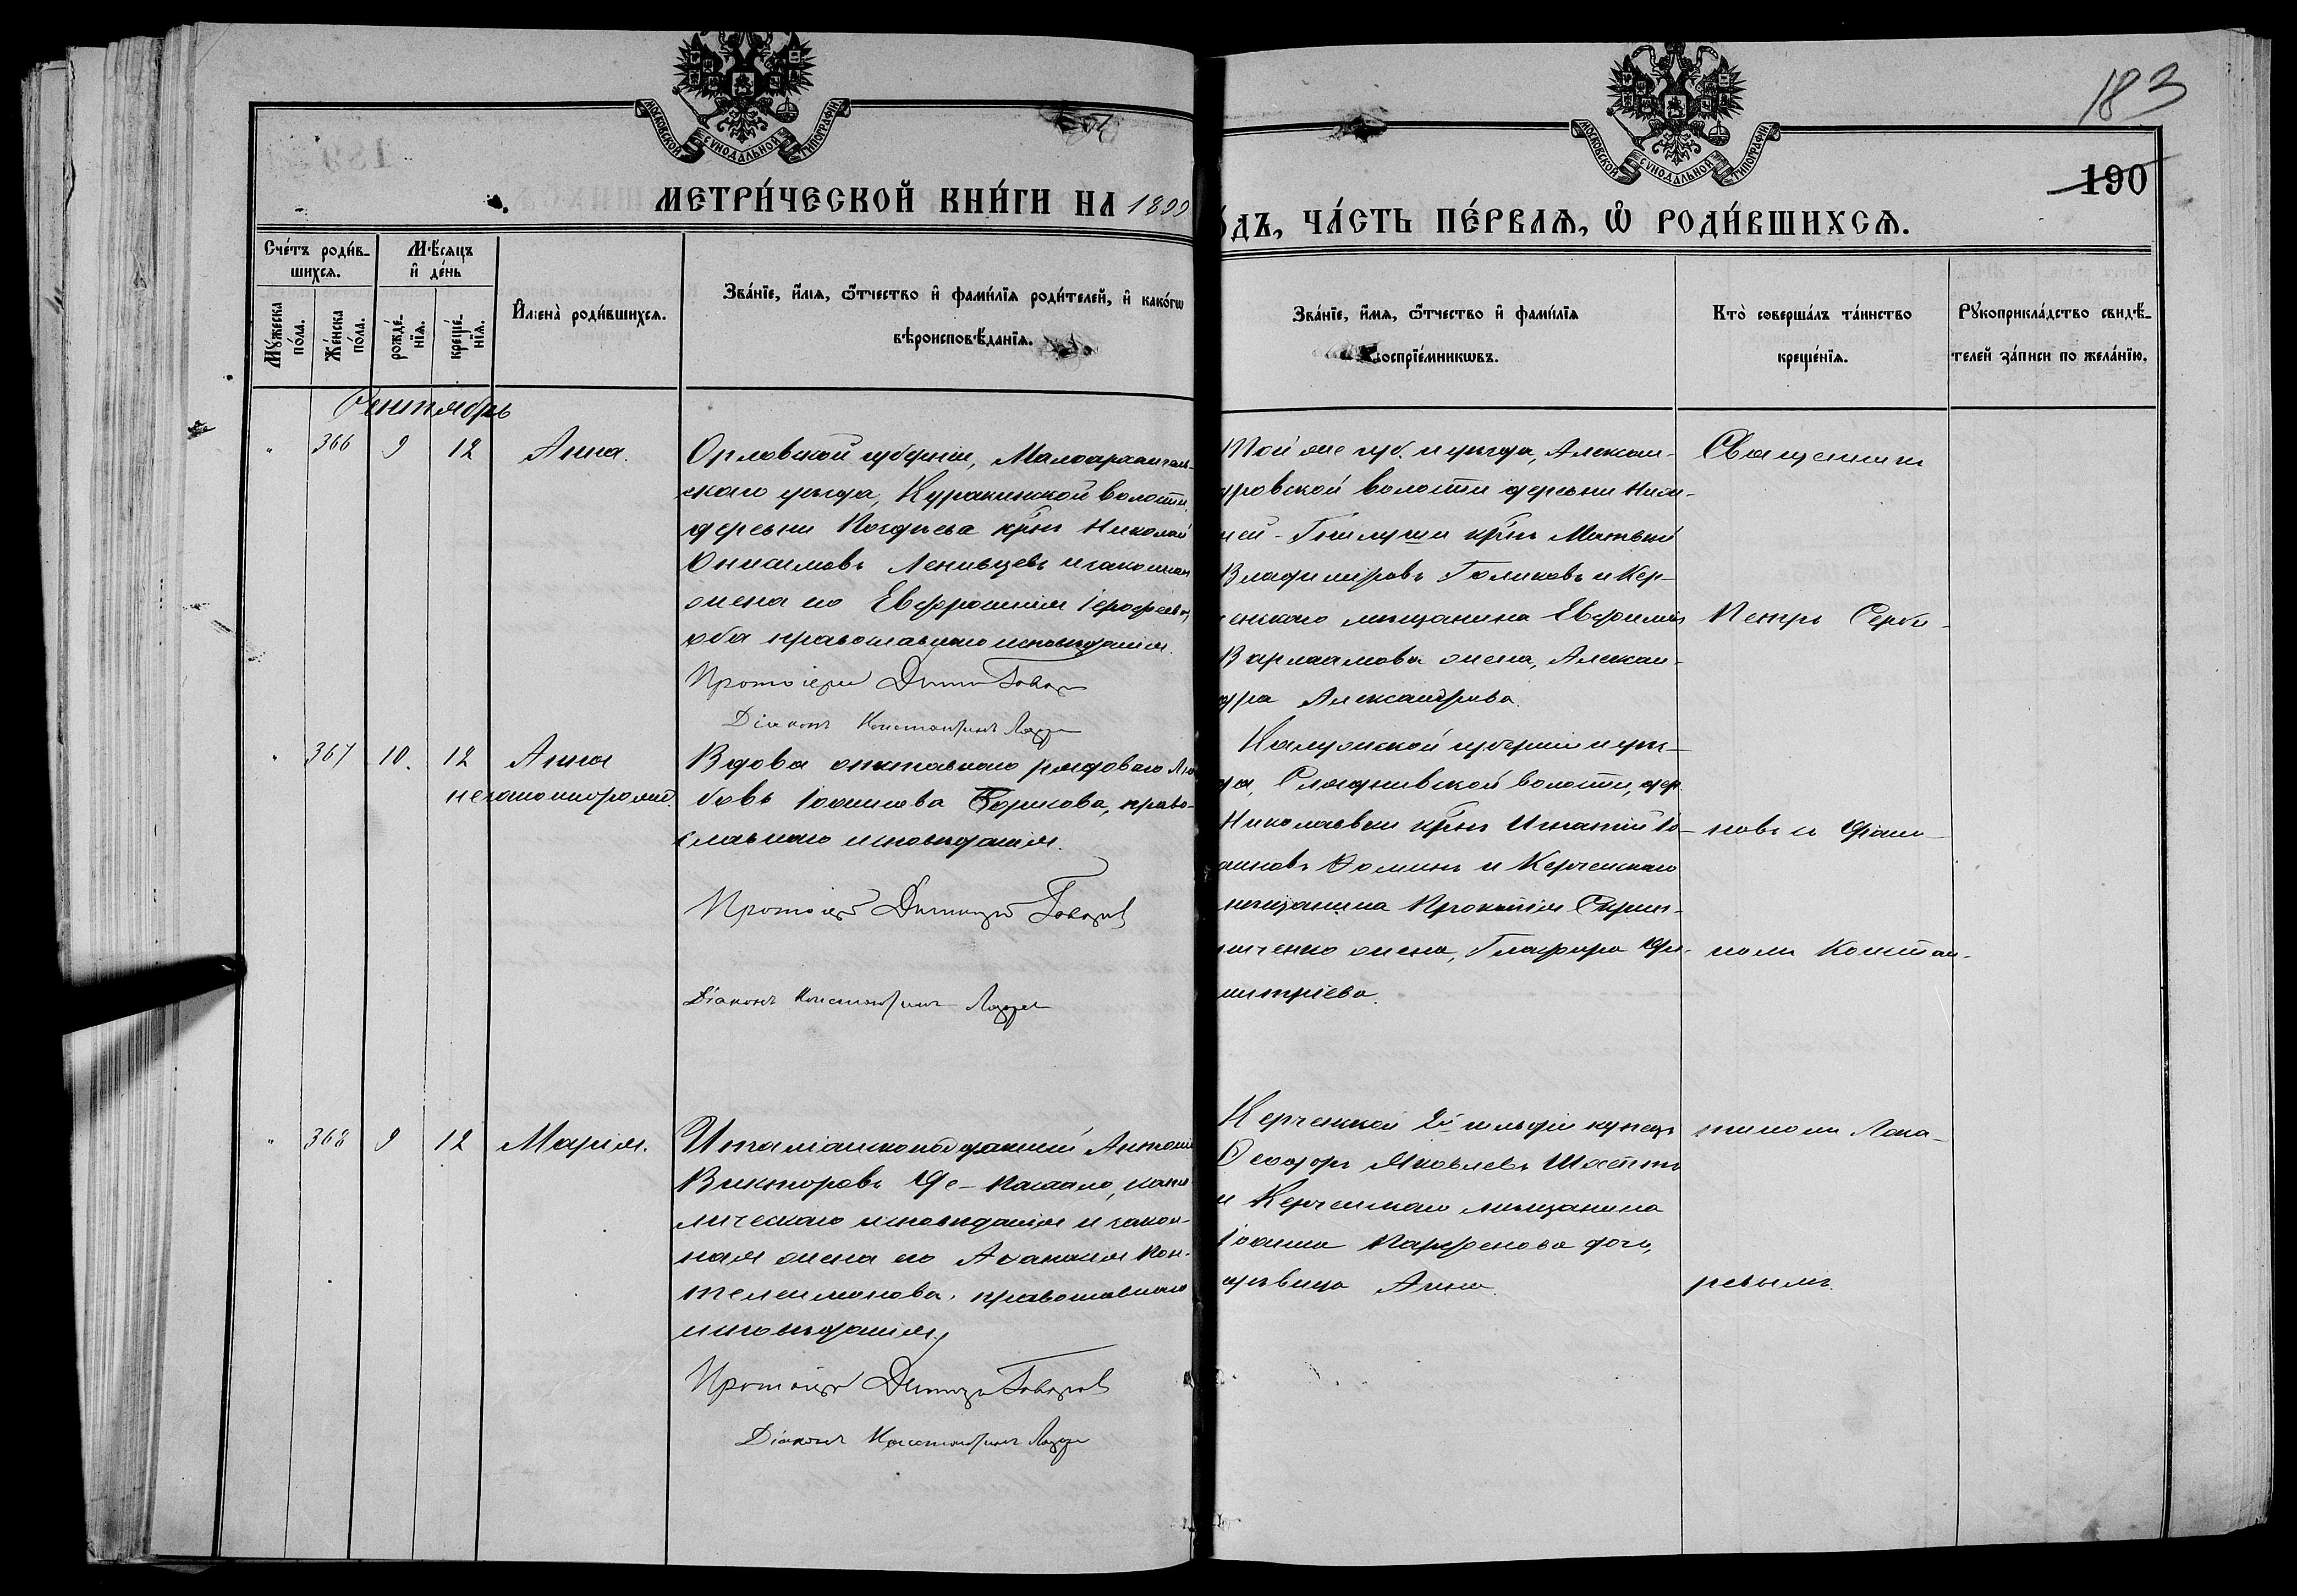 183
190
МОСКОВСКОЙ СѴНОДАЛЬНОЙ ТИПОГРАФІИ
МОСКОВСКОЙ СѴНОДАЛЬНОЙ ТИПОГРАФІИ
МЕТРИ́ЧЕСКОЙ КНИ́ГИ НА 1899
ДЪ, ЧА́СТЬ ПЕ́РВАѦ, Ѡ҆ РОДИ́ВШИХСѦ.
Сче́тъ роди́в-
шихсѧ.
Мѣ́сѧцъ
и҆ де́нь
Мꙋ́жеска
по́ла.
Же́нска
по́ла.
рожде́-
нїѧ.
креще́-
нїѧ.
И҆мена̀ роди́вшихсѧ.
Зва́нїе, и҆́мѧ, ѻ҆́тчество и҆ фами́лїѧ роди́телей, и҆ како́гѡ
вѣроисповѣ́данїѧ.
Зва́нїе, и҆́мѧ, ѻ҆́тчество и҆ фами́лїѧ
воспрїе́мникѡвъ.
Кто̀ соверша́лъ та́инство
креще́нїѧ.
Рꙋкоприкла́дство свидѣ́-
телей за́писи по жела́нїю.
Сентябрь
" 366 9 12 Анна.
Орловской губерніи, Малоархангель-
скаго уѣзда, Куракинской волости,
деревни крнъ Николай
Онисимовъ Ленивцевъ и законная
жена его Евфросинія Іерофеева,
оба православнаго исповѣданія.
Протоіерей
Діаконъ Константинъ
Той же губ. и уѣзда, Алексан-
дровской волости деревни Ниж-
ней-Гнилуши крнъ Матвей
Владиміровъ Голиковъ и Кер-
ченскаго мѣщанина Евфимія
Варлаамова жена, Алексан-
дра Александрова.
Священник
Петръ Серби-
" 367 10. 12 Анна
незаконнорожд.
Вдова отставнаго рядоваго Лю-
бовь Іоаннова Борисова, право-
славнаго исповѣданія.
Протоіерей Димитрій
Діаконъ Константинъ
Калужской губерніи и уѣз-
да, волости, дер.
Николаевки крнъ Игнатій Іо-
анновъ Фоминъ и Керченскаго
мѣщанина Прокопія Скрип-
ниченко жена, Глафира Ди-
митріева.
новъ и діако-
номъ Констан-
" 368 9 12 Марія.
Итальянскоподданный Антоній
Викторовъ Де-Пассало, като-
лическаго исповѣданія и закон-
ная жена его Аѳанасія Пан-
телеимонова, православнаго
исповѣданія.
Протоіерей Димитрій
Діаконъ Константинъ
Керченскій 2й гильдіи купецъ
Ѳеодоръ Яковлевъ
и Керченскаго мѣщанина
Іоанна Парфенова дочь,
дѣвица Анна.
тиномъ Лаза-
ревымъ.